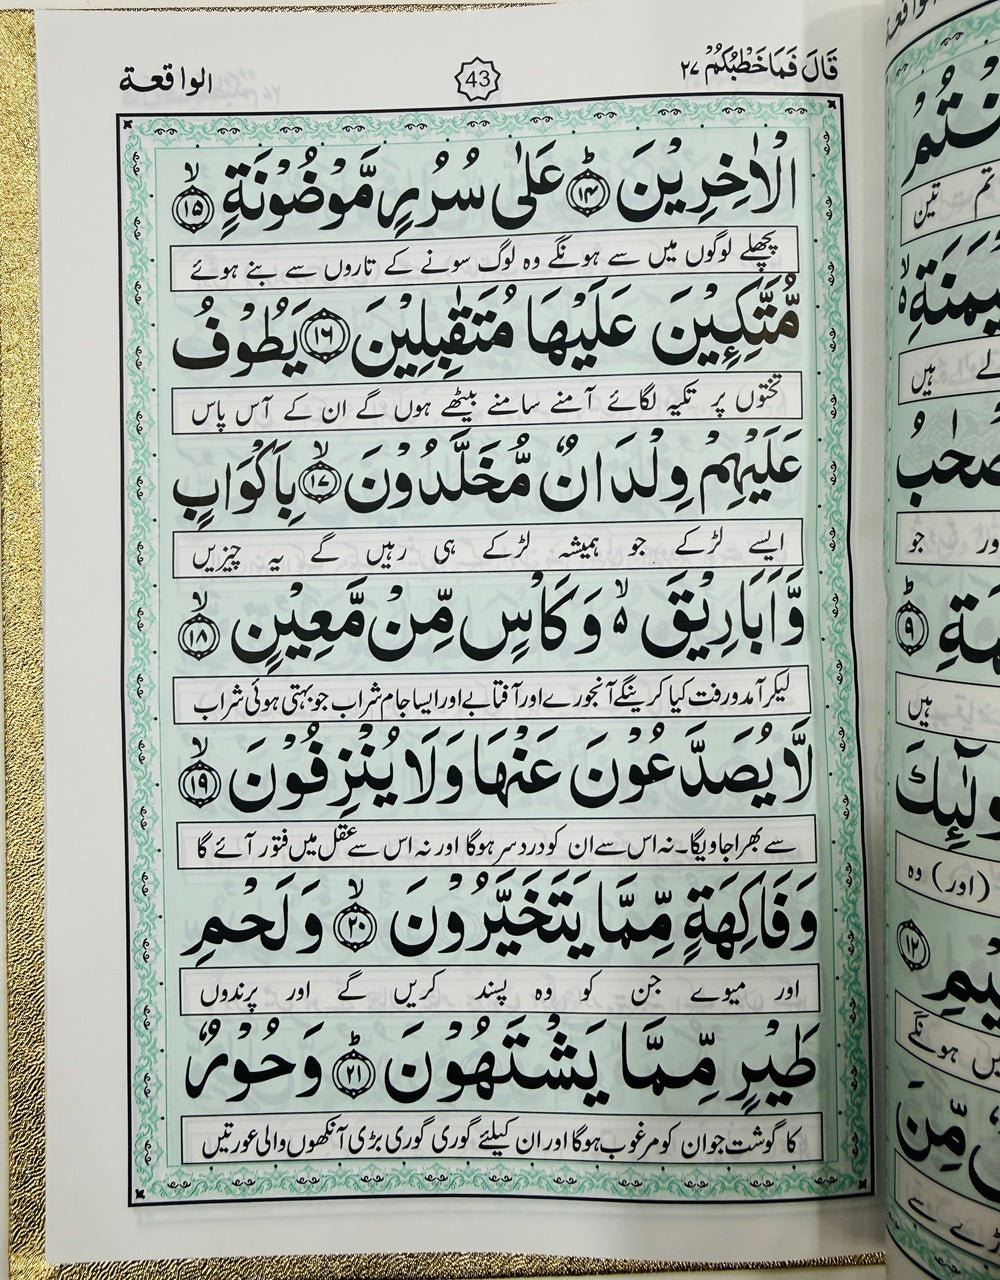 قَالَ فَمَا خَطْبُكُمْ ۲۷
43
الواقعة
الْاٰخِرِيْنَ ۱۴ؕ عَلٰى سُرُرٍ مَّوْضُوْنَةٍ ۱۵ۙ
پچھلے لوگوں میں سے ہونگے وہ لوگ سونے کے تاروں سے بنے ہوئے
مُّتَّكِـِٕيْنَ عَلَيْهَا مُتَقٰبِلِيْنَ ۱۶ يَطُوْفُ
تختوں پر تکیہ لگائے آمنے سامنے بیٹھے ہوں گے ان کے آس پاس
عَلَيْهِمْ وِلْدَانٌ مُّخَلَّدُوْنَ ۱۷ۙ بِاَكْوَابٍ
ایسے لڑکے جو ہمیشہ لڑکے ہی رہیں گے یہ چیزیں
وَّاَبَارِيْقَ ۙ۵ وَكَاْسٍ مِّنْ مَّعِيْنٍ ۱۸ۙ
لیکر آمدورفت کیا کرینگے آنجورے اور آفتابے اور ایسا جام شراب جو بہتی ہوئی شراب
لَّا يُصَدَّعُوْنَ عَنْهَا وَلَا يُنْزِفُوْنَ ۱۹ۙ
سے بھرا جاویگا۔ نہ اس سے ان کو درد سر ہوگا اور نہ اس سے عقل میں فتور آئے گا
وَفَاكِهَةٍ مِّمَّا يَتَخَيَّرُوْنَ ۲۰ۙ وَلَحْمِ
اور میوے جن کو وہ پسند کریں گے اور پرندوں
طَيْرٍ مِّمَّا يَشْتَهُوْنَ ۲۱ؕ وَحُوْرٌ
کا گوشت جو ان کو مرغوب ہوگا اور ان کیلئے گوری گوری بڑی آنکھوں والی عورتیں